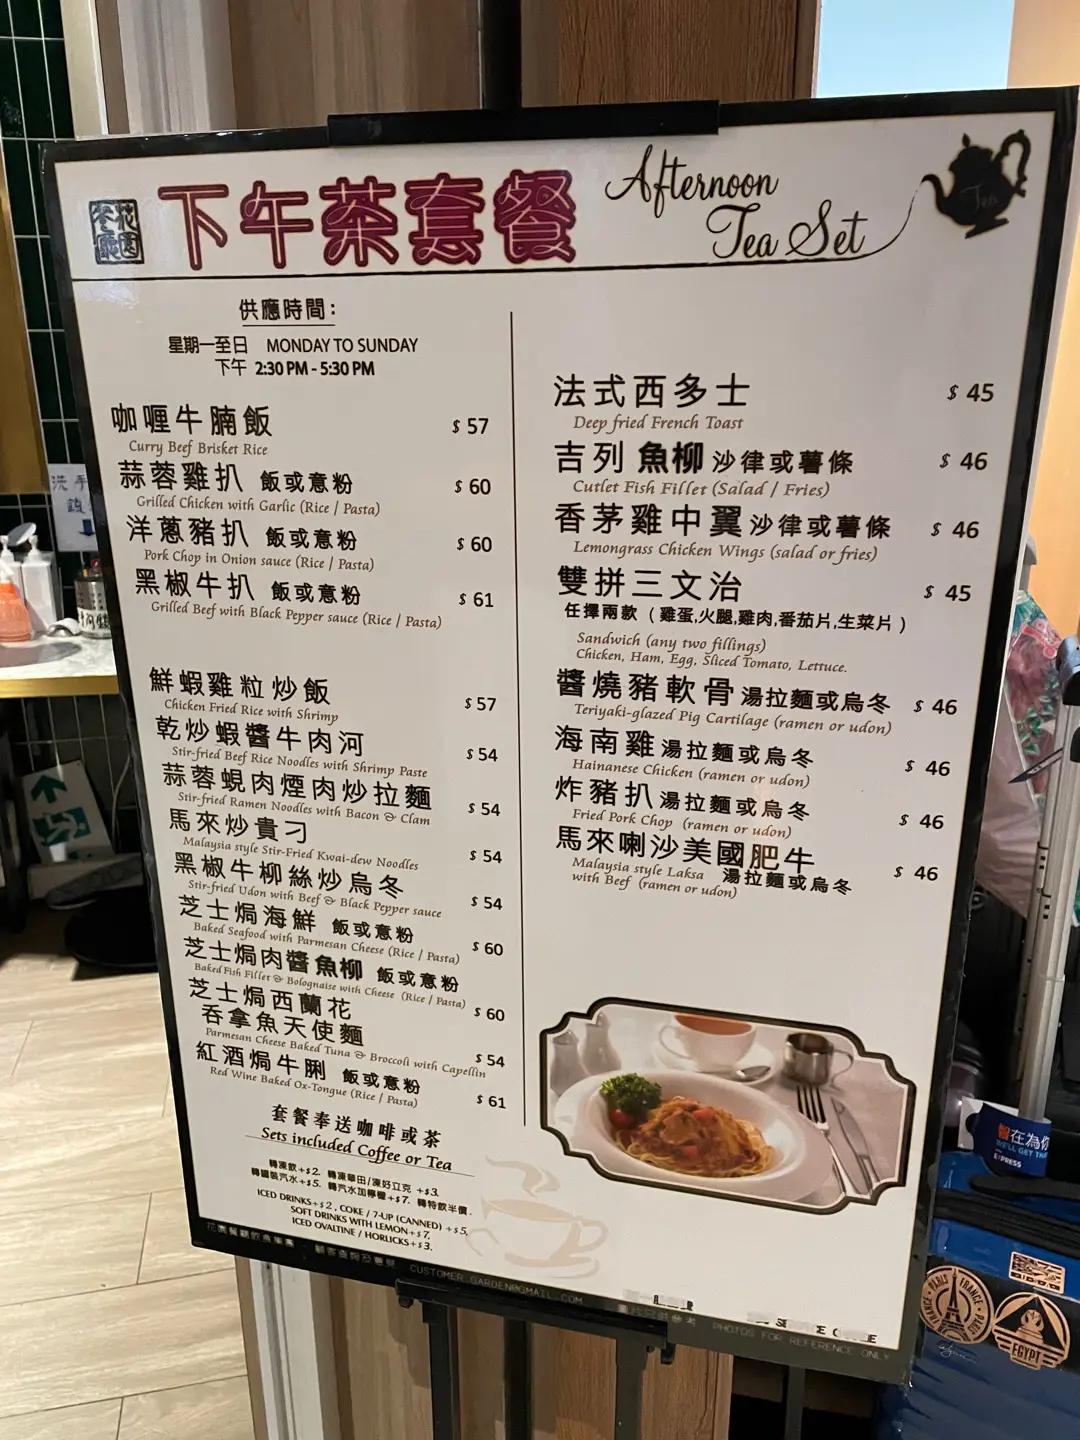 花園餐廳
下午茶套餐
Afternoon
Tea Set
Tea
供應時間:
星期一至日 MONDAY TO SUNDAY
下午 2:30 PM - 5:30 PM
咖喱牛腩飯 $ 57
Curry Beef Brisket Rice
蒜蓉雞扒 飯或意粉 $ 60
Grilled Chicken with Garlic (Rice / Pasta)
洋蔥豬扒 飯或意粉 $ 60
Pork Chop in Onion sauce (Rice / Pasta)
黑椒牛扒 飯或意粉 $ 61
Grilled Beef with Black Pepper sauce (Rice / Pasta)
鮮蝦雞粒炒飯 $ 57
Chicken Fried Rice with Shrimp
乾炒蝦醬牛肉河 $ 54
Stir-fried Beef Rice Noodles with Shrimp Paste
蒜蓉蜆肉煙肉炒拉麵 $ 54
Stir-fried Ramen Noodles with Bacon & Clam
馬來炒貴刁 $ 54
Malaysia style Stir-Fried Kwai-dew Noodles
黑椒牛柳絲炒烏冬 $ 54
Stir-fried Udon with Beef & Black Pepper sauce
芝士焗海鮮 飯或意粉 $ 60
Baked Seafood with Parmesan Cheese (Rice / Pasta)
芝士焗肉醬魚柳 飯或意粉 $ 60
Baked Fish Fillet & Bolognaise with Cheese (Rice / Pasta)
芝士焗西蘭花
吞拿魚天使麵 $ 54
Parmesan Cheese Baked Tuna & Broccoli with Capellin
紅酒焗牛脷 飯或意粉 $ 61
Red Wine Baked Ox-Tongue (Rice / Pasta)
套餐奉送咖啡或茶
Sets included Coffee or Tea
轉凍飲+$2. 轉凍華田/凍好立克 +$3.
轉罐裝汽水+$5. 轉汽水加檸檬+$7. 轉特飲半價.
ICED DRINKS+$2 , COKE / 7-UP (CANNED) +$5,
SOFT DRINKS WITH LEMON+$7,
ICED OVALTINE / HORLICKS+$3.
法式西多士 $ 45
Deep fried French Toast
吉列魚柳 沙律或薯條 $ 46
Cutlet Fish Fillet (Salad / Fries)
香茅雞中翼 沙律或薯條 $ 46
Lemongrass Chicken Wings (salad or fries)
雙拼三文治 $ 45
任擇兩款（雞蛋,火腿,雞肉,番茄片,生菜片）
Sandwich (any two fillings)
Chicken, Ham, Egg, Sliced Tomato, Lettuce.
醬燒豬軟骨 湯拉麵或烏冬 $ 46
Teriyaki-glazed Pig Cartilage (ramen or udon)
海南雞 湯拉麵或烏冬 $ 46
Hainanese Chicken (ramen or udon)
炸豬扒 湯拉麵或烏冬 $ 46
Fried Pork Chop (ramen or udon)
馬來喇沙美國肥牛 $ 46
Malaysia style Laksa 湯拉麵或烏冬
with Beef (ramen or udon)
CUSTOMER.GARDEN@GMAIL.COM
PHOTOS FOR REFERENCE ONLY
洗手
在為你
WE'LL GET
EXPRESS
FRANCE
PARIS
EGYPT